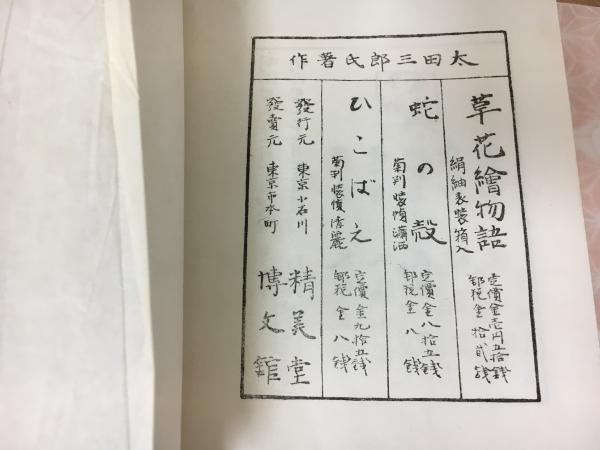 太田三郎氏著作
草花繪物語
絹紬表装箱入
定價金壱円五拾銭
郵税金拾貳銭
蛇の殻
菊判装幀瀟洒
定價金八拾五銭
郵税金八銭
ひこばえ
菊判装幀秀麗
定價金九拾五銭
郵税金八銭
發行元 東京小石川 精美堂
發賣元 東京市本町 博文館